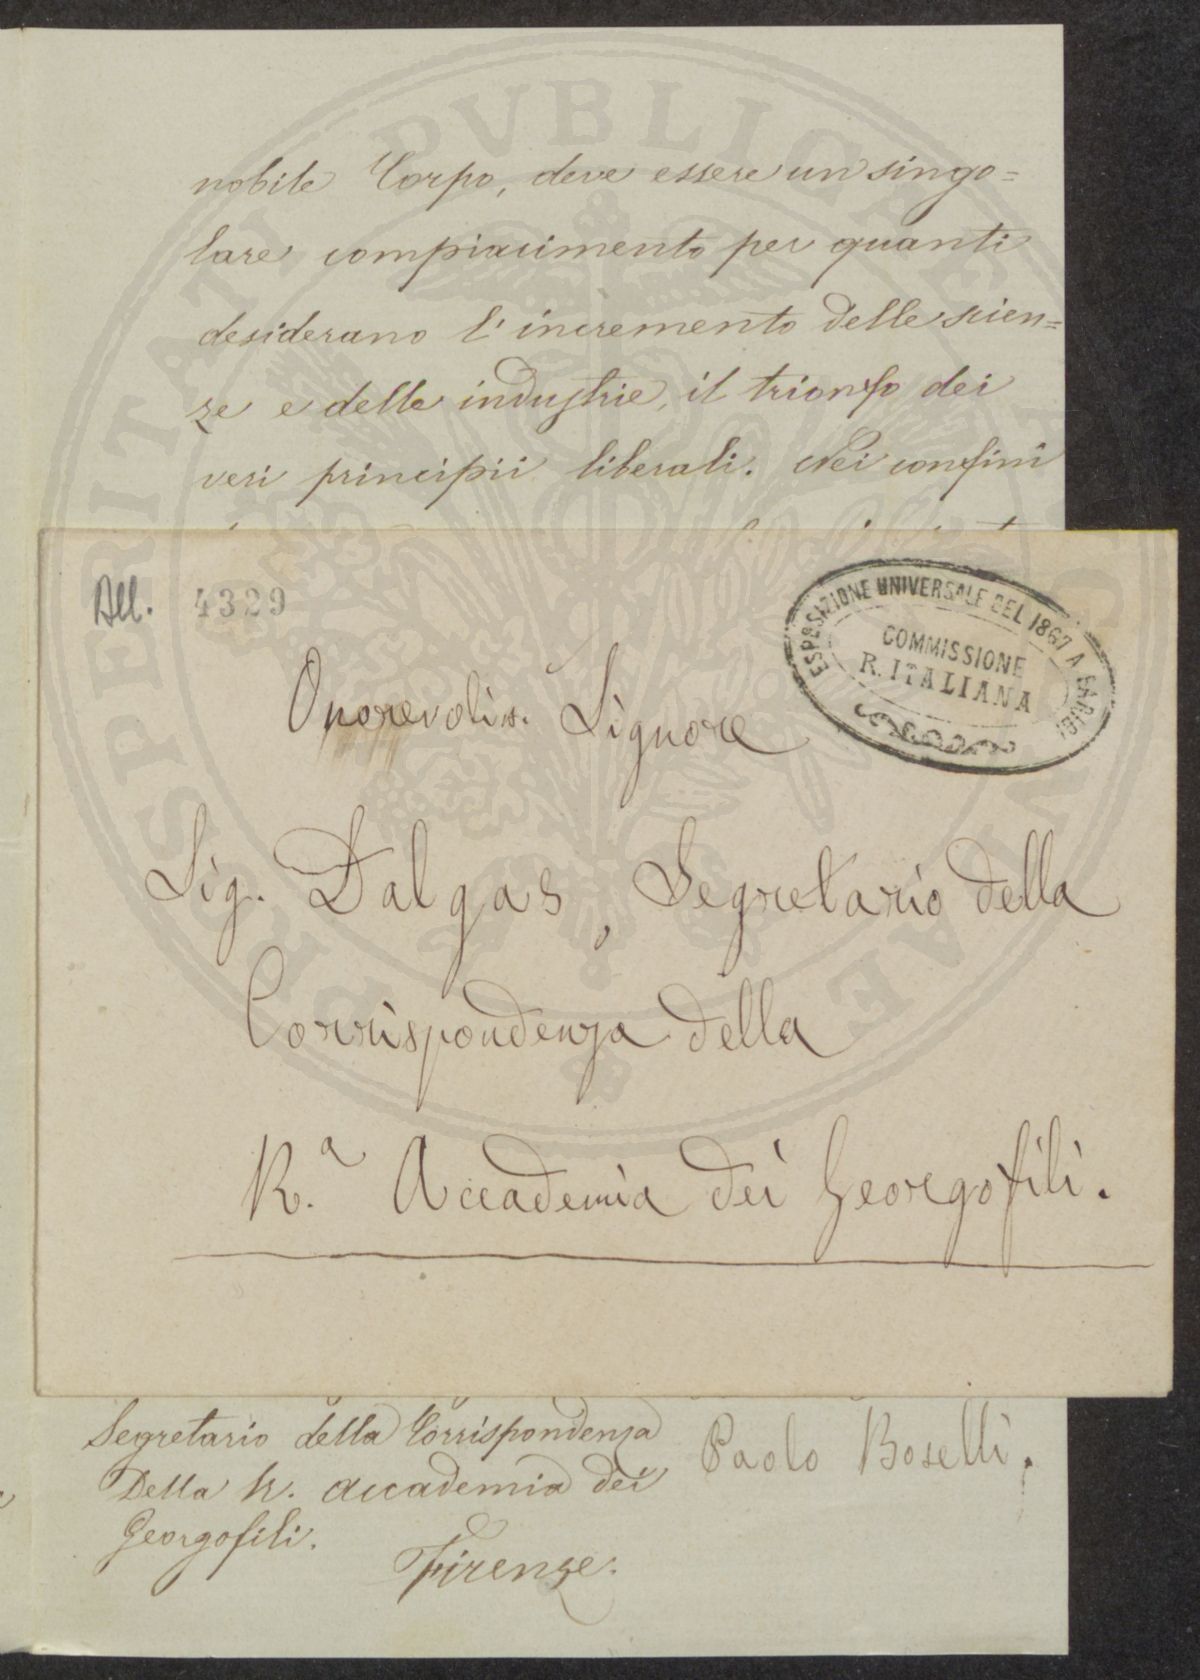 nobile Corpo, deve essere un singo=
lare compiacimento per quanti
desiderano l'incremento delle scien=
ze e delle industrie, il trionfo dei
veri principii liberali. Nei confini
All. 4329
ESPOSIZIONE UNIVERSALE DEL 1867 A PARIGI
COMMISSIONE
R. ITALIANA
Onorevolis. Signore
Sig. Dalgas, Segretario della
Corrispondenza della
R.ª Accademia dei Georgofili.
Segretario della Corrispondenza
Della R. Accademia dei
Georgofili.
Firenze.
Paolo Boselli.
PROSPERITATI PUBLICAE AUGENDAE